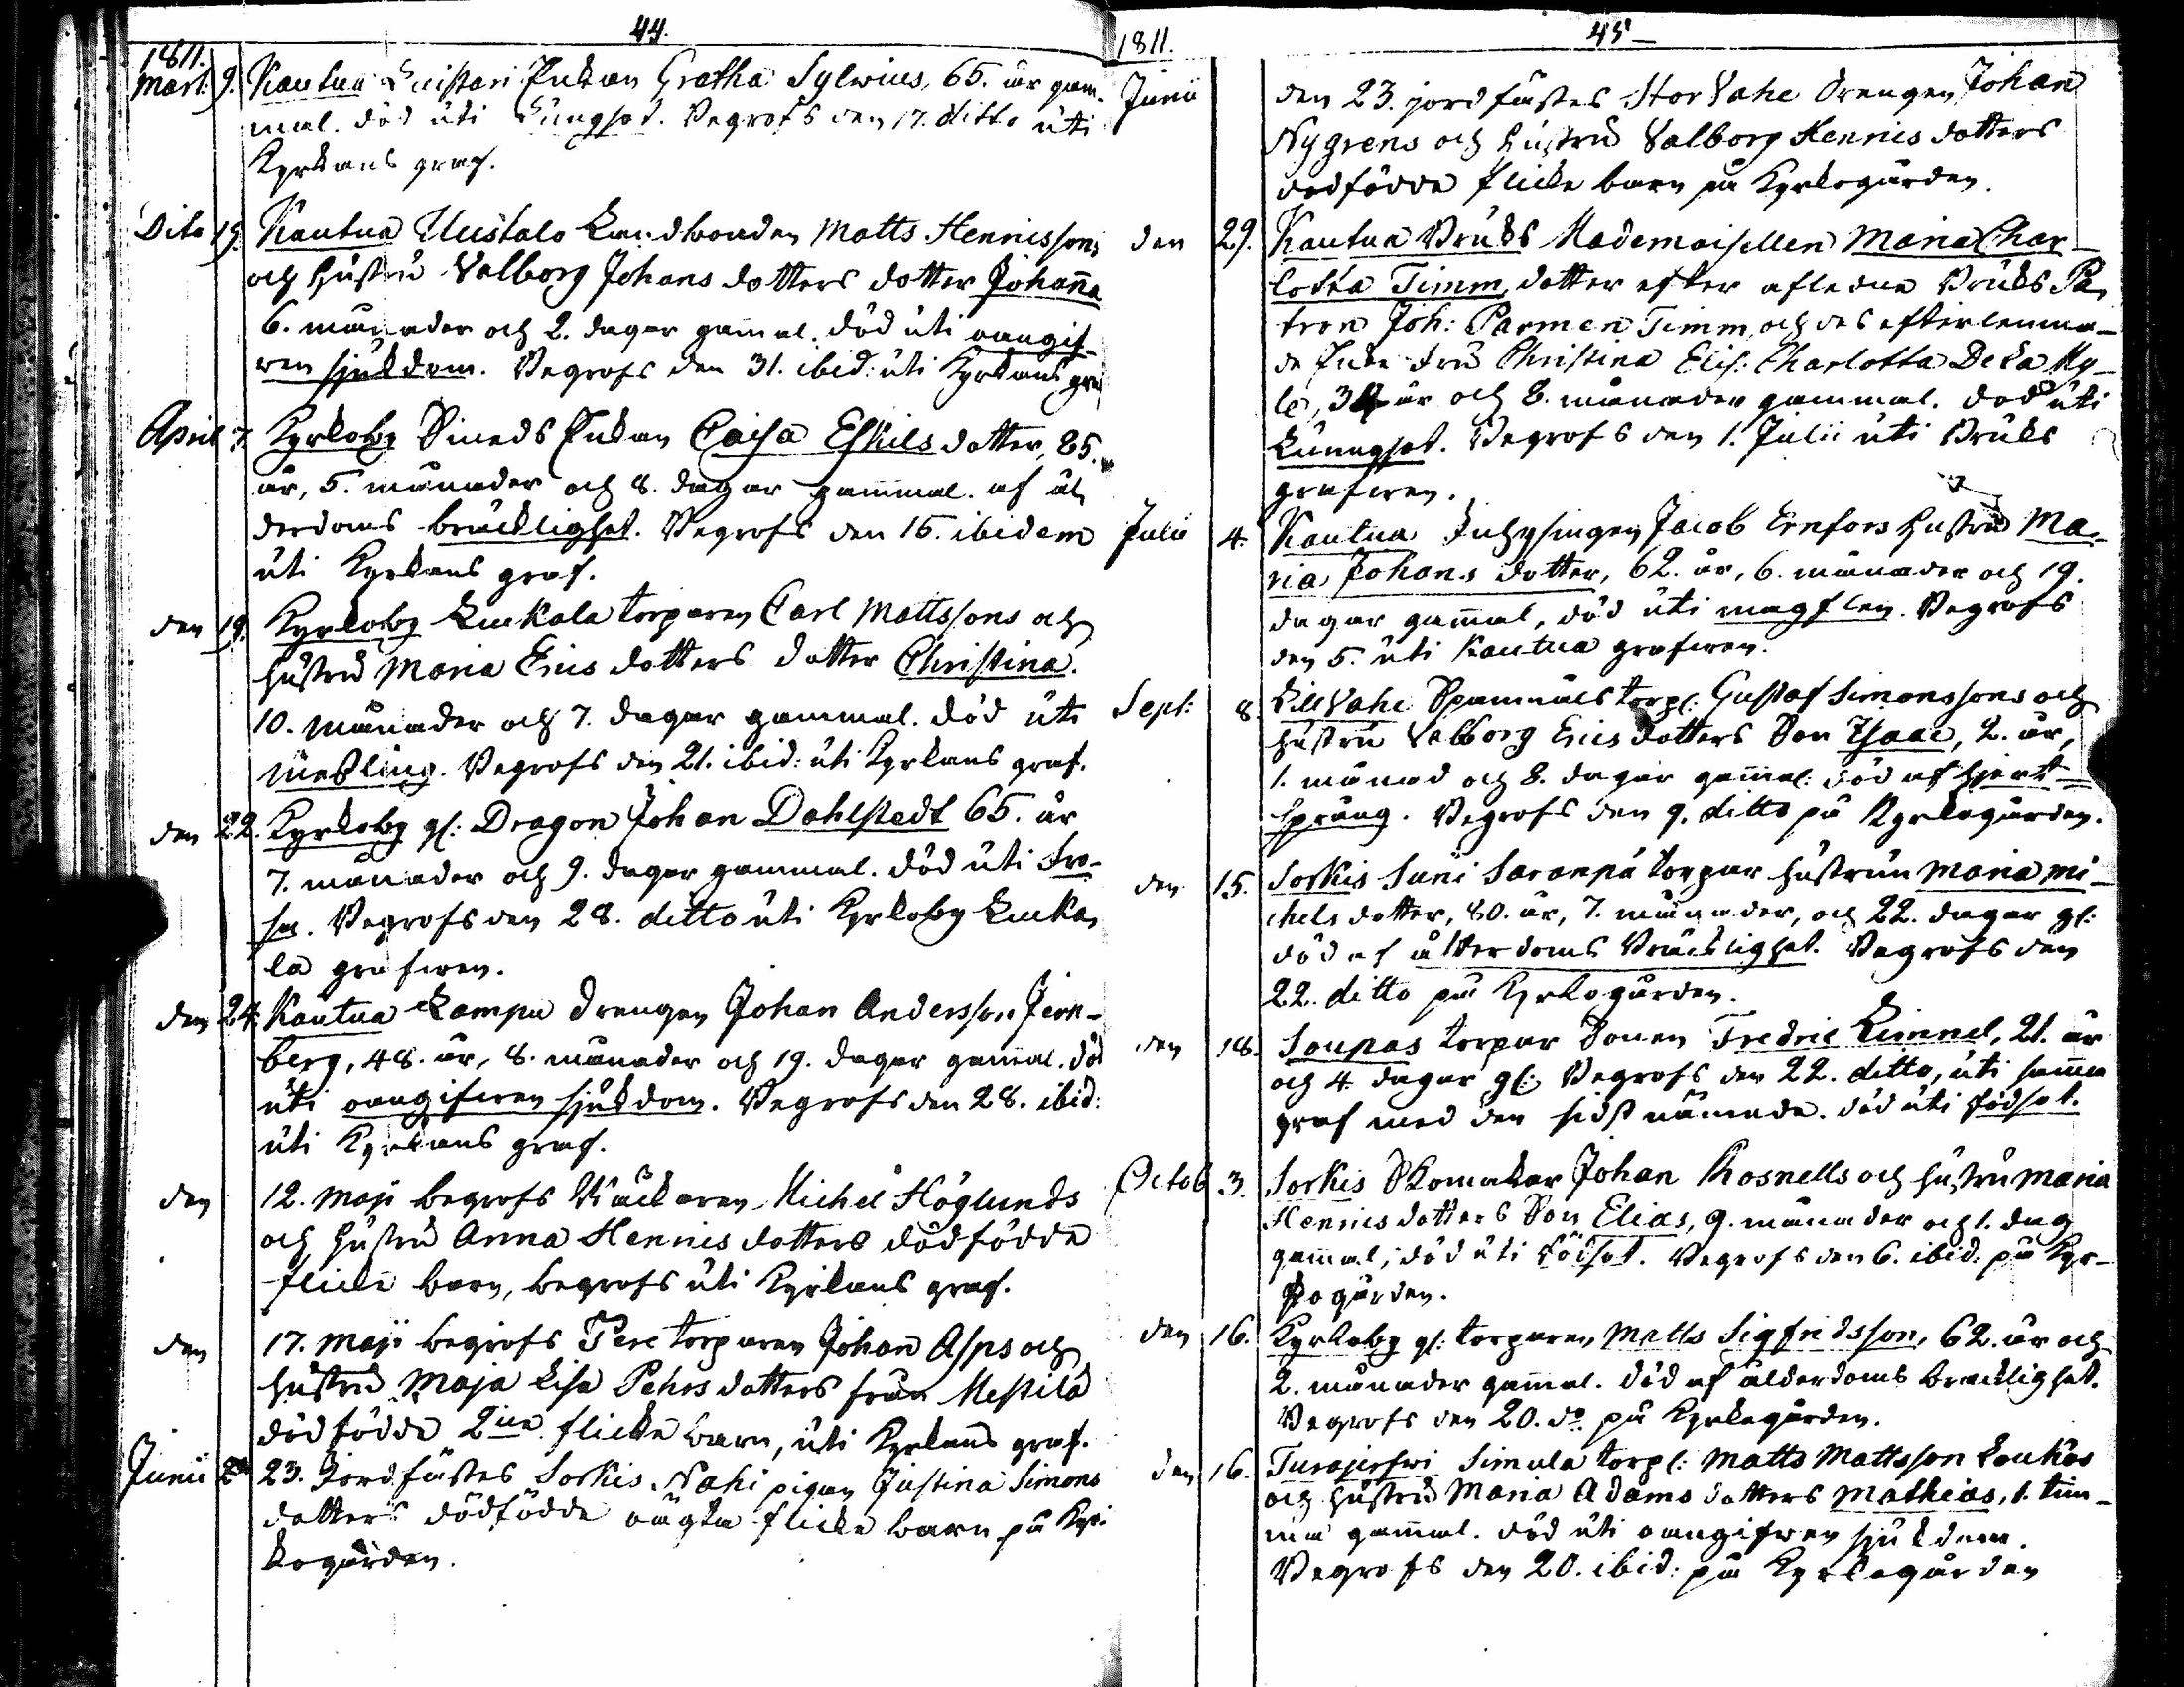 44.
1811.
Mart: 9. Kautua Luistari Enkan Gretha Sylvius, 65. år gam-
mal. död uti Lungsot. Begrofs den 17. ditto uti
Kyrkans graf.
Dito 19. Kautua Uustalo Landbonden Matts Hennissons
och hustru Valborg Johans dotters dotter Johanna
6. månader och 2. dagar gammal. död uti oangif-
ven sjukdom. Begrofs den 31. ibid: uti Kyrkans graf
April 7. Kyrkoby Enkan Caisa Eskils dotter, 85.
år, 5. månader och 8. dagar gammal. af ål-
derdoms bräcklighet. Begrofs den 15. ibidem
uti Kyrkans graf.
den 19. Kyrkoby Luckala torparen Carl Mattssons och
hustru Maria Erics dotters dotter Christina.
10. månader och 7. dagar gammal. död uti
Mesling. Begrofs den 21. ibid: uti Kyrkans graf.
den 22. Kyrkoby gl: Dragon Johan Dahlstedt 65. år
7. månader och 9. dagar gammal. död uti Fro-
ssa. Begrofs den 28. ditto uti Kyrkoby Lucka-
la grafven.
den 24. Kautua Lampu drengen Johan Andersson Jern-
berg, 48. år, 8. månader och 19. dagar gammal. död
uti oangifven sjukdom. Begrofs den 28. ibid:
uti Kyrkans graf.
den 12. Maji begrofs Michel Höglunds
och hustru Anna Hennis dotters dödfödde
flicke barn, begrofs uti Kyrkans graf.
den 17. Maji begrofs Pere torparen Johan Asps och
hustru Maja Lisa Pehrs dotters från Mestilä
dödfödde 2ne flicke barn, uti Kyrkans graf.
Junii 23. Jordfästes Sorkis Nahi pigan Justina Simons
dotters dödfödde oägta flicke barn på Kyr-
kogården.
45
1811.
Junii den 23. jordfästes Stor Vahe drengen Johan
Nygrens och hustru Valborg Hennis dotters
dödfödde flicke barn på Kyrkogården.
den 29. Kautua Bruks Mademoisellen Maria Char-
lotta Timm, dotter efter afledne Bruks Pa-
tron Joh: Parmen Timm, och des efterlemna-
de Enke Fru Christina Elis: Charlotta De la My-
le, år och 8. månader gammal. död uti
Lungsot. Begrofs den 1. Julii uti Bruks
grafven.
Julii 4. Kautua Inhysingen Jacob Ernfors hustru Ma-
ria Johans dotter, 62. år, 6. månader och 19.
dagar gammal, död uti magflen. Begrofs
den 5. uti Kautua grafven.
Sept: 8. Lill Vahe torp: Gustaf Simonssons och
hustru Valborg Erics dotters Son Isaac, 2. år,
1. månad och 8. dagar gammal: död af hjert-
språng. Begrofs den 9. ditto på Kyrkogården.
den 15. Sorkis Suni Saranpä torpar hustrun Maria Mi-
chels dotter, 80. år, 7. månader, och 22. dagar gl:
död af ålderdoms bräcklighet. Begrofs den
22. ditto på Kyrkogården.
den 18. Soupas torpar Sonen Fredric Limnel, 21. år
och 4. dagar gl: Begrofs den 22. ditto, uti samma
graf med den sidst nämnde. död uti rödsot.
Octob 3. Sorkis Skomakar Johan Rosnells och hustru Maria
Hennis dotters Son Elias, 9. månader och 1. dag
gammal, död uti rödsot. Begrofs den 6. ibid: på Kyr-
kogården.
den 16. Kyrkoby gl: torparen Matts Sigfridsson, 62. år och
2. månader gammal. död af ålderdoms bräcklighet.
Begrofs den 20. do på Kyrkogården.
den 16. Turajerfvi Simula torp: Matts Mattsson Loukos
och hustru Maria Adams dotters Mathias, 1. tim-
ma gammal. död uti oangifven sjukdom.
Begrofs den 20. ibid: på Kyrkogården